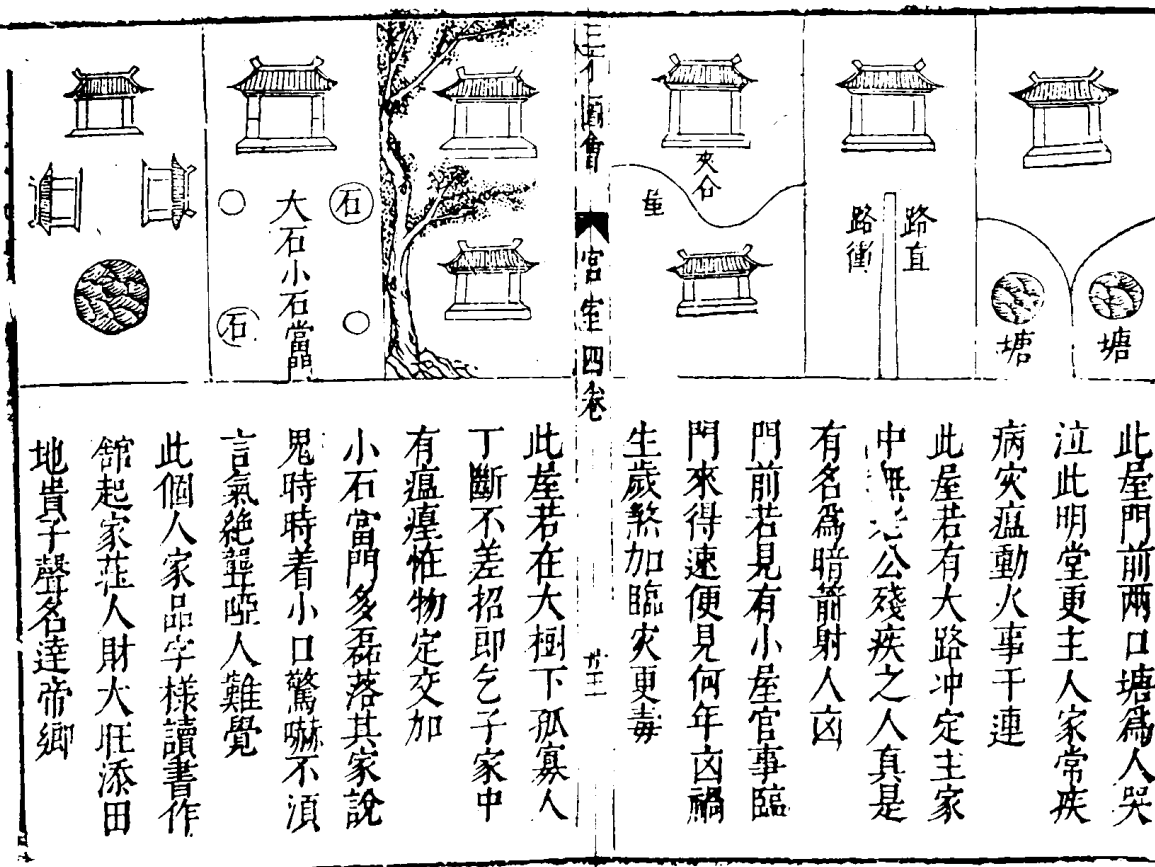 塘
塘
路直
路衝
夾谷
三才圖會
宮室四卷
廿二
石
大石小石當門
石
此屋門前兩口塘爲人哭
泣此明堂更主人家常疾
病灾瘟動火事干連
此屋若有大路冲定主家
中無老公殘疾之人真是
有名爲暗箭射人凶
門前若見有小屋官事臨
門來得速便見何年凶禍
生歲煞加臨灾更毒
此屋若在大樹下孤寡人
丁斷不差招郎乞子家中
有瘟𤺋恠物定交加
小石當門多磊落其家說
鬼時時着小口驚嚇不須
言氣絶聾啞人難覺
此個人家品字樣讀書作
舘起家荘人財大旺添田
地貴子聲名達帝鄉